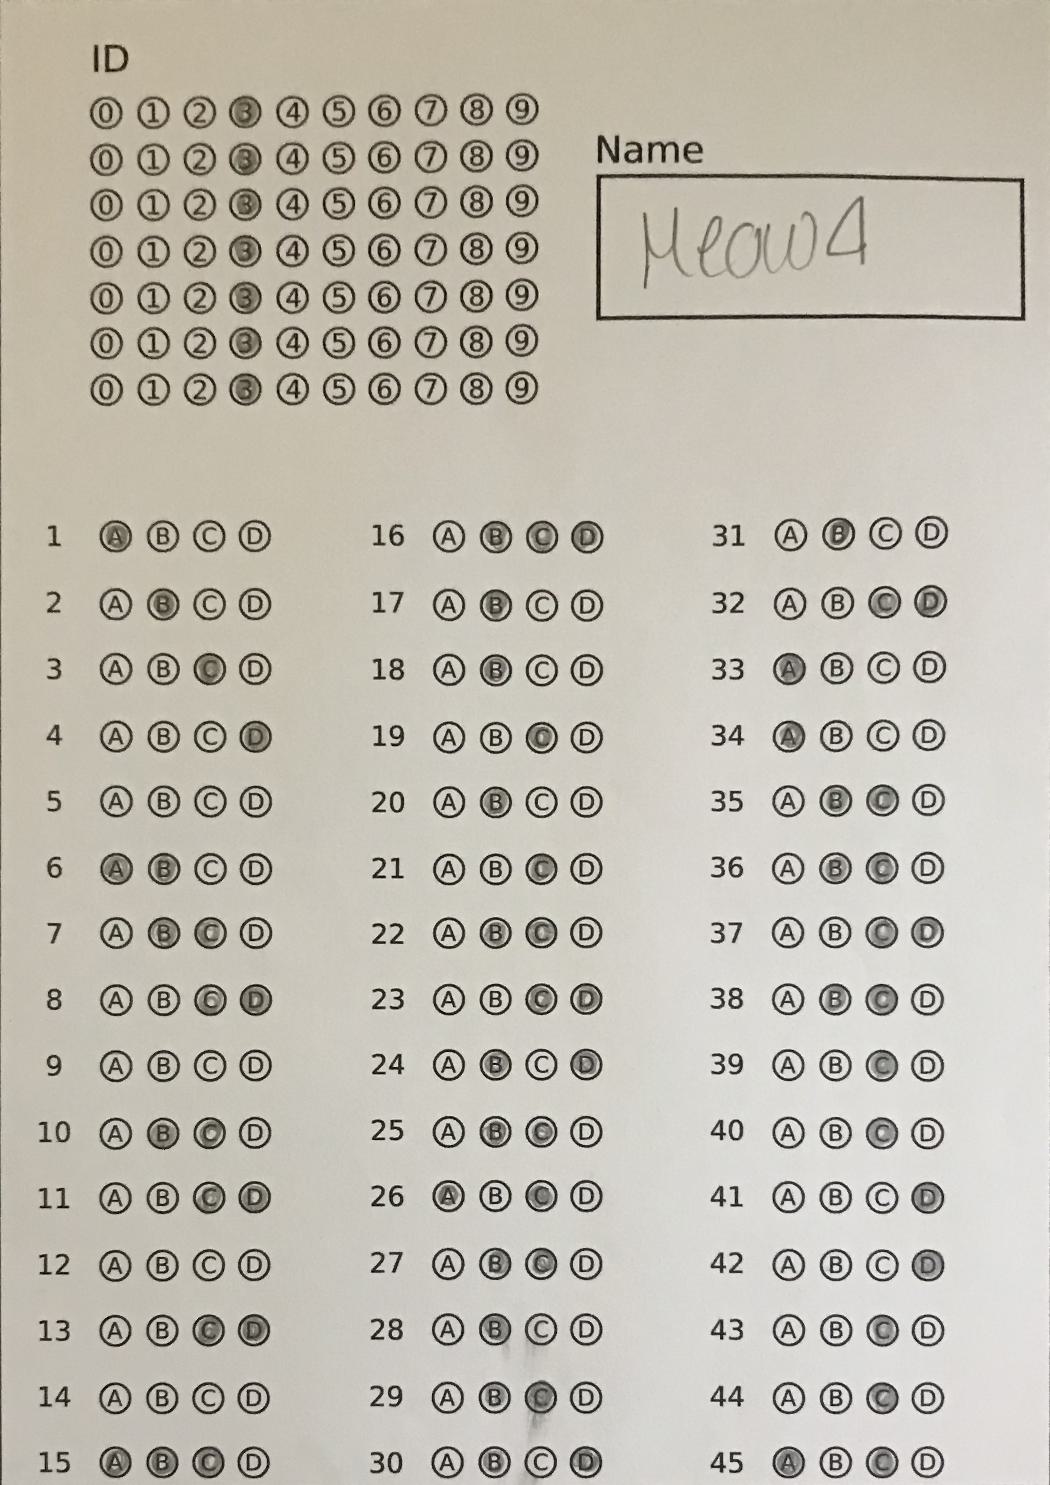 ID
0 1 2 3 4 5 6 7 8 9
0 1 2 3 4 5 6 7 8 9
0 1 2 3 4 5 6 7 8 9
0 1 2 3 4 5 6 7 8 9
0 1 2 3 4 5 6 7 8 9
0 1 2 3 4 5 6 7 8 9
0 1 2 3 4 5 6 7 8 9
Name
Meow4
1 A B C D
2 A B C D
3 A B C D
4 A B C D
5 A B C D
6 A B C D
7 A B C D
8 A B C D
9 A B C D
10 A B C D
11 A B C D
12 A B C D
13 A B C D
14 A B C D
15 A B C D
16 A B C D
17 A B C D
18 A B C D
19 A B C D
20 A B C D
21 A B C D
22 A B C D
23 A B C D
24 A B C D
25 A B C D
26 A B C D
27 A B C D
28 A B C D
29 A B C D
30 A B C D
31 A B C D
32 A B C D
33 A B C D
34 A B C D
35 A B C D
36 A B C D
37 A B C D
38 A B C D
39 A B C D
40 A B C D
41 A B C D
42 A B C D
43 A B C D
44 A B C D
45 A B C D